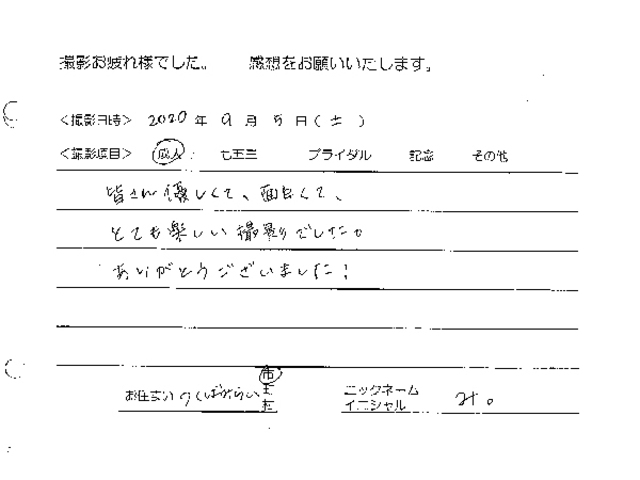 撮影お疲れ様でした。 感想をお願いいたします。
<撮影日時> 2020年 9月 5日(土)
<撮影項目> 成人 七五三 ブライダル 記念 その他
皆さん優しくて、面白くて、
とても楽しい撮影でした。
ありがとうございました!
お住まい つくばみらい 市 町 村 ニックネーム イニシャル